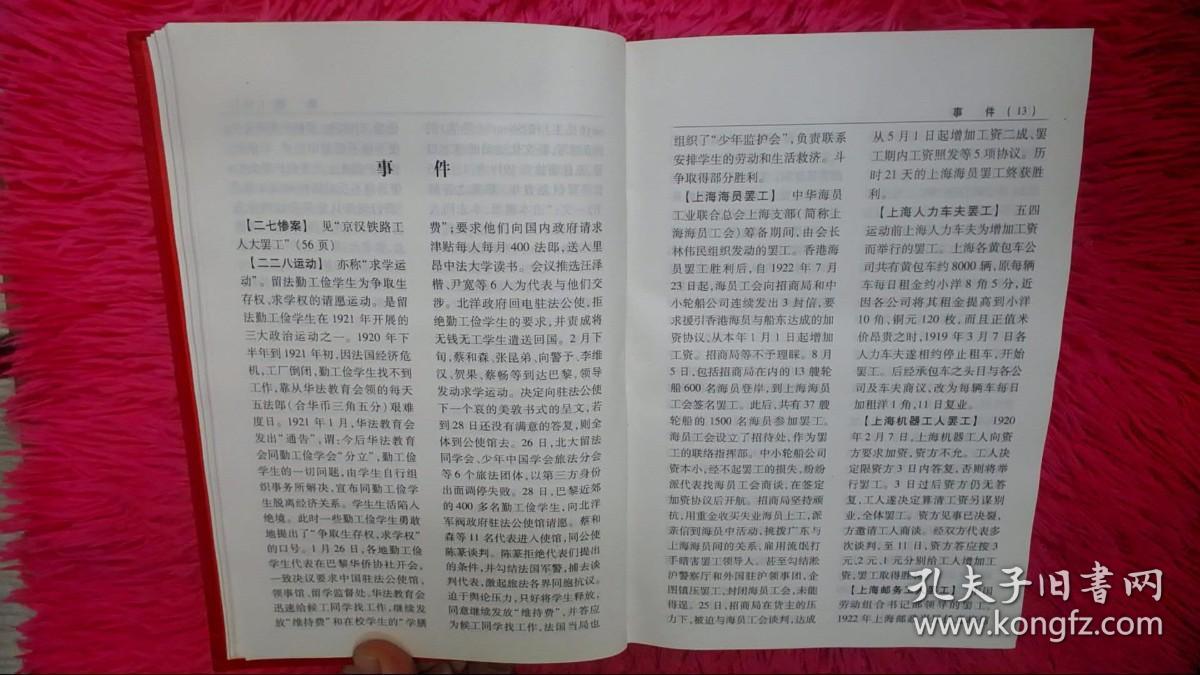 事 件
【二七惨案】 见“京汉铁路工
人大罢工”(56页)
【二二八运动】 亦称“求学运
动”。留法勤工俭学生为争取生
存权、求学权的请愿运动。是留
法勤工俭学生在1921年开展的
三大政治运动之一。1920年下
半年到1921年初,因法国经济危
机,工厂倒闭,勤工俭学生找不到
工作,靠从华法教育会领的每天
五法郎(合华币三角五分)艰难
度日。1921年1月,华法教育会
发出“通告”,谓:今后华法教育
会同勤工俭学会“分立”,勤工俭
学生的一切问题,由学生自行组
织事务所解决,宣布同勤工俭学
生脱离经济关系。学生生活陷入
绝境。此时一些勤工俭学生勇敢
地提出了“争取生存权,求学权”
的口号。1月26日,各地勤工俭
学生代表在巴黎华侨协社开会,
一致决议要求中国驻法公使馆,
领事馆,留学监督处、华法教育会
迅速给候工同学找工作,继续发
放“维持费”和在校学生的“学膳
费”;要求他们向国内政府请求
津贴每人每月400法郎,送入里
昂中法大学读书。会议推选汪泽
楷、尹宽等6人为代表与他们交
涉。北洋政府回电驻法公使,拒
绝勤工俭学生的要求,并责成将
无钱无工学生遣送回国。2月下
旬,蔡和森、张昆弟、向警予、李维
汉、贺果、蔡畅等到达巴黎,领导
发动求学运动。决定向驻法公使
下一个哀的美敦书式的呈文,若
到28日还没有满意的答复,则全
体到公使馆去。26日,北大留法
同学会、少年中国学会旅法分会
等6个旅法团体,以第三方身份
出面调停失败。28日,巴黎近郊
的400多名勤工俭学生,向北洋
军阀政府驻法公使馆请愿。蔡和
森等11名代表进入使馆,同公使
陈箓谈判。陈箓拒绝代表们提出
的条件,并勾结法国军警,捕去谈
判代表,激起旅法各界同胞抗议。
迫于舆论压力,只好将学生释放,
同意继续发放“维持费”,并答应
为候工同学找工作,法国当局也
事 件 (13)
组织了“少年监护会”,负责联系
安排学生的劳动和生活救济。斗
争取得部分胜利。
【上海海员罢工】 中华海员
工业联合总会上海支部(简称上
海海员工会)筹备期间,由会长
林伟民组织发动的罢工。香港海
员罢工胜利后,自1922年7月
23日起,海员工会向招商局和中
小轮船公司连续发出3封信,要
求援引香港海员与船东达成的加
资协议,从本年1月1日起增加
工资。招商局等不予理睬。8月
5日,包括招商局在内的13艘轮
船600名海员登岸,到上海海员
工会签名罢工。此后,共有37艘
轮船的1500名海员参加罢工。
海员工会设立了招待处,作为罢
工的联络指挥部。中小轮船公司
资本小,经不起罢工的损失,纷纷
派代表找海员工会商谈,在签定
加资协议后开航。招商局坚持顽
抗,用重金收买失业海员上工,派
亲信到海员中活动,挑拨广东与
上海海员间的关系,雇用流氓打
手暗害罢工领导人。甚至勾结淞
沪警察厅和外国驻沪领事团,企
图镇压罢工,封闭海员工会,未能
得逞。25日,招商局在货主的压
力下,被迫与海员工会谈判,达成
从5月1日起增加工资二成、罢
工期内工资照发等5项协议。历
时21天的上海海员罢工终获胜
利。
【上海人力车夫罢工】 五四
运动前上海人力车夫为增加工资
而举行的罢工。上海各黄包车公
司共有黄包车约8000辆,原每辆
车每日租金约小洋8角5分,近
因各公司将其租金提高到小洋
10角、铜元120枚,而且正值米
价昂贵之时,1919年3月7日各
人力车夫遂相约停止租车,开始
罢工。后经承包车之头目与各公
司及车夫商议,改为每辆车每日
加租洋1角,11日复业。
【上海机器工人罢工】 1920
年2月7日,上海机器工人向资
方要求加资,资方不允。工人决
定限资方3日内答复,否则将举
行罢工。3日过后资方仍无答
复,工人遂决定算清工资另谋别
业,全体罢工。资方见事已决裂,
方邀请工人商谈。经双方代表多
次谈判,至11日,资方答应按3
元、2元、1元分别给工人增加工
资,罢工取得胜
【上海邮务工
劳动组合书记部领导的罢工。
1922年上海邮
孔夫子旧书网
www.kongfz.com